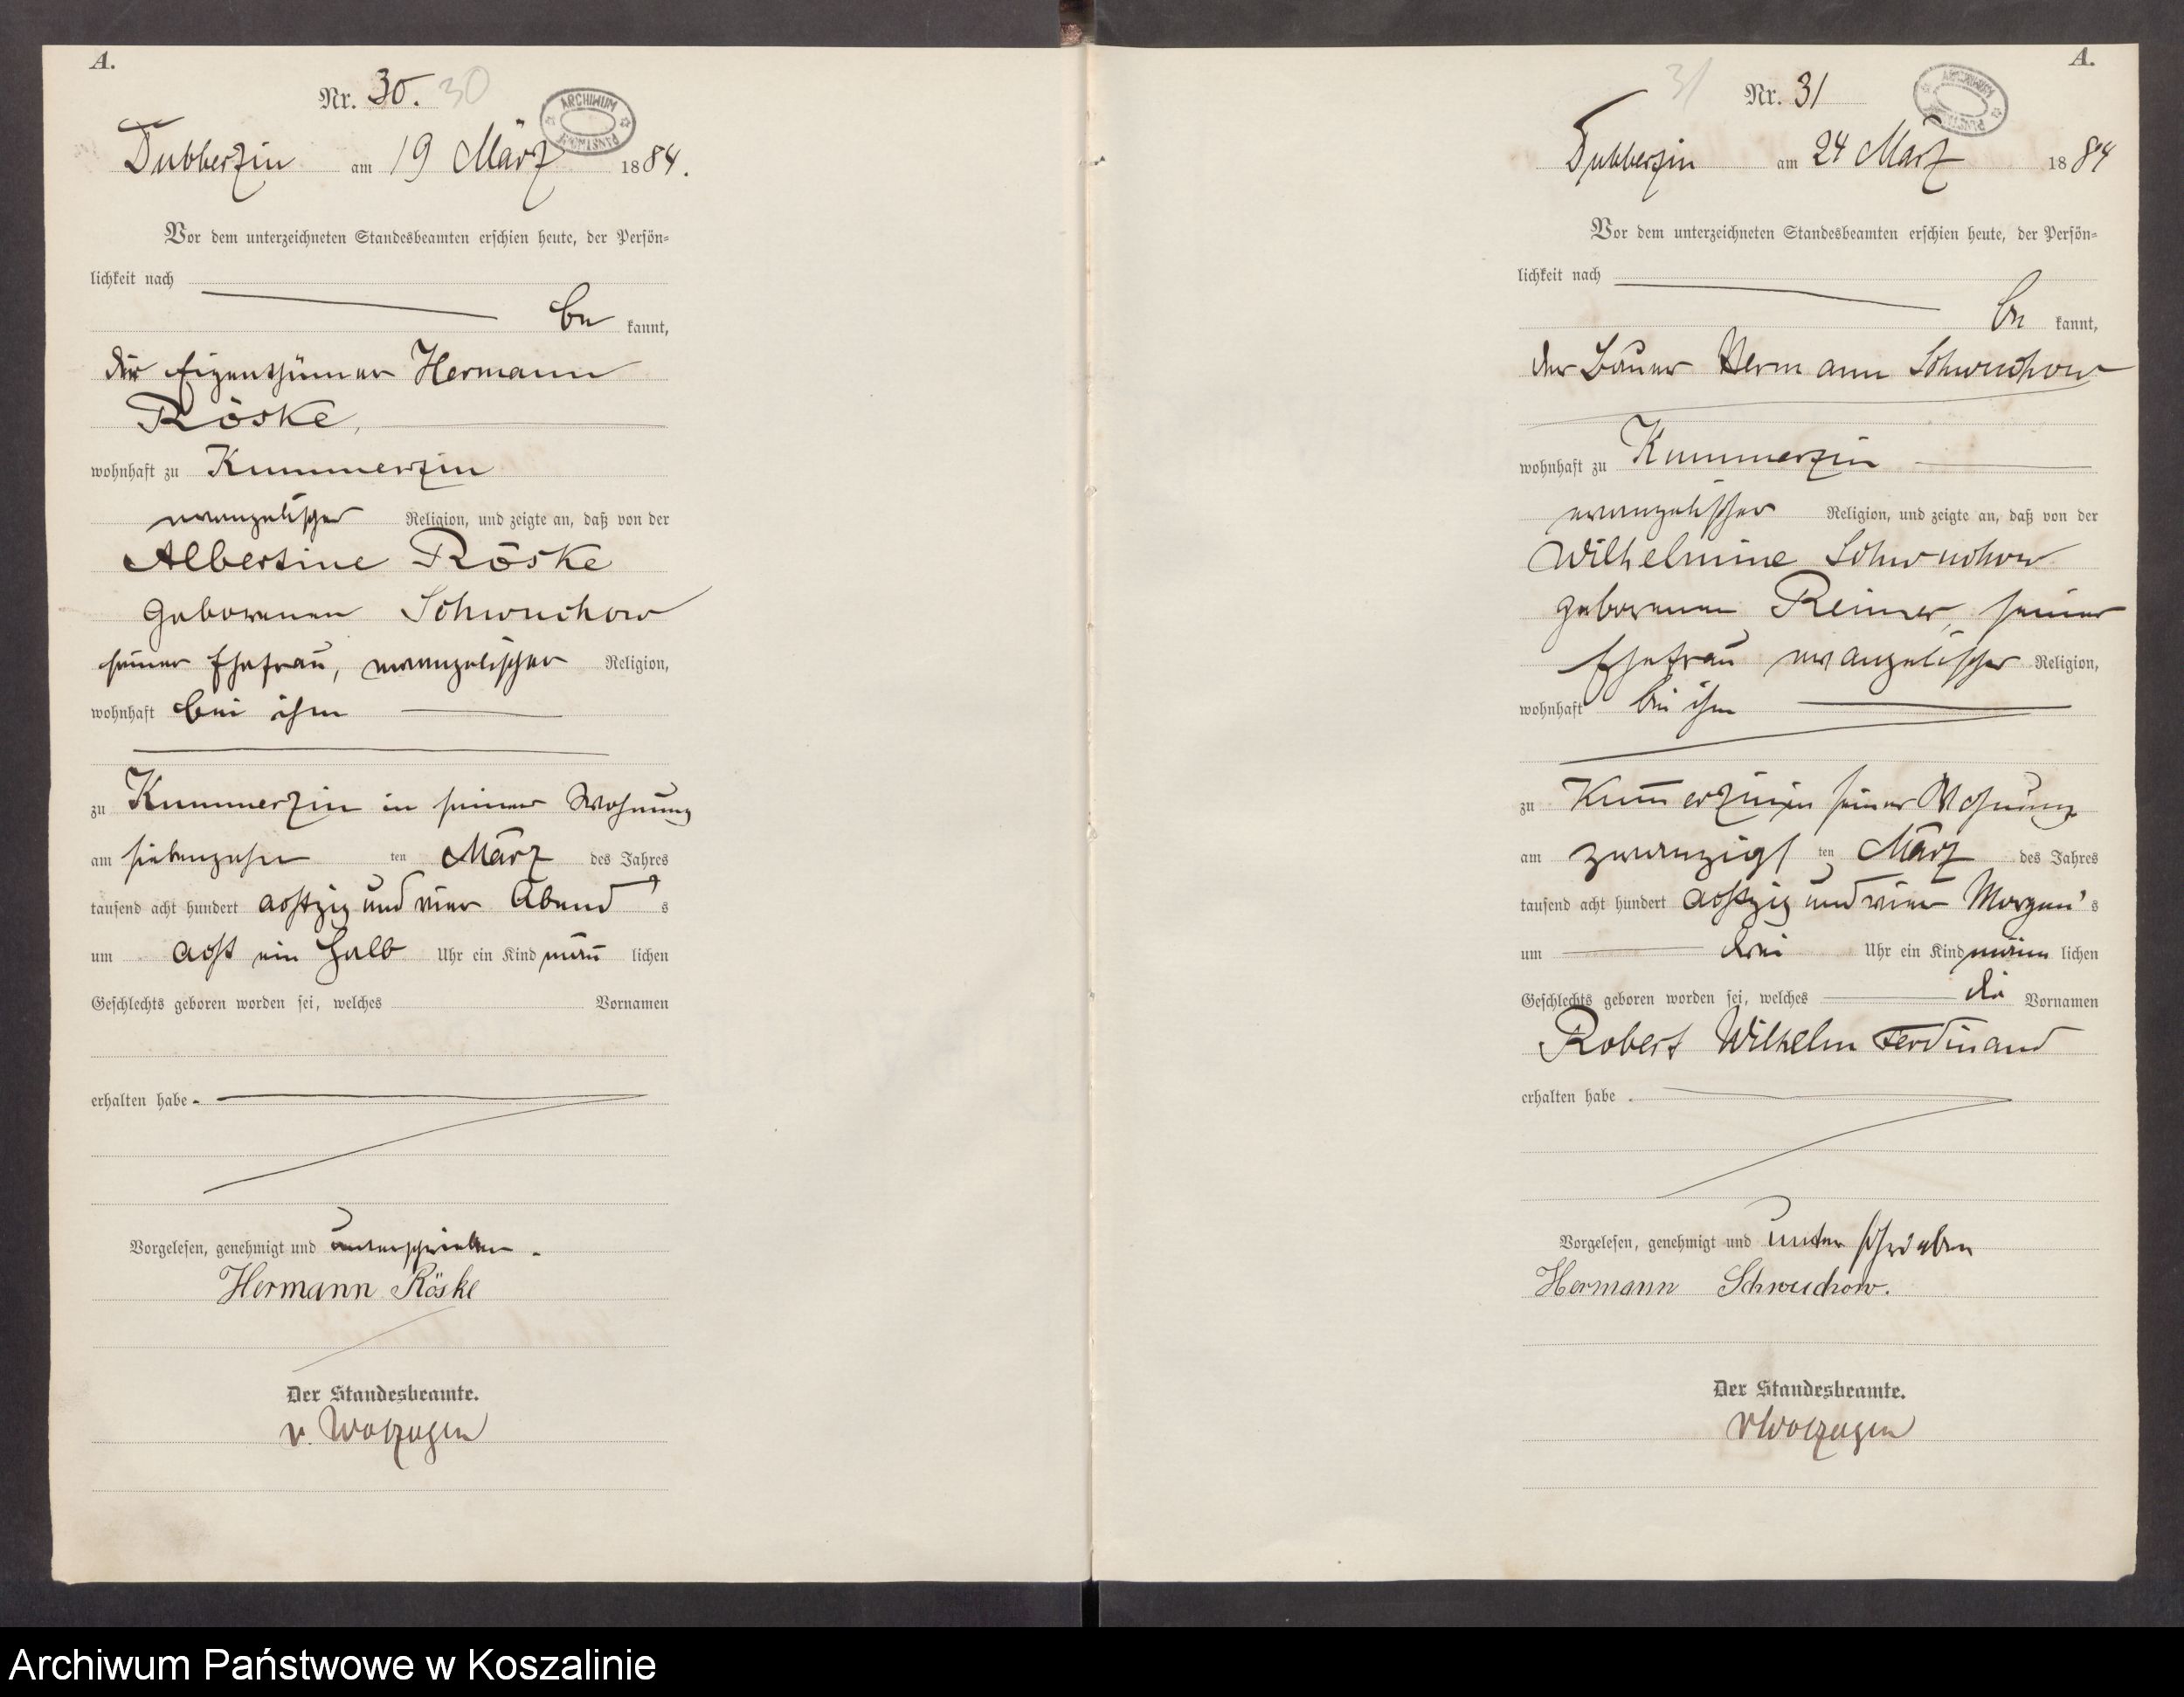 A.
Nr. 30. 30
ARCHIWUM
Dubberzin am 19 März 1884.
Vor dem unterzeichneten Standesbeamten erschien heute, der Persön-
lichkeit nach
be kannt,
der Eigenthümer Hermann
Röske,
wohnhaft zu Kummerzin
evangelischer Religion, und zeigte an, daß von der
Albertine Röske
geborenen Schwuchow
seiner Ehefrau, evangelischer Religion,
wohnhaft bei ihm
zu Kummerzin in seiner Wohnung
am siebenzehn ten März des Jahres
tausend acht hundert achtzig und vier Abend s
um acht ein halb Uhr ein Kind män̄ lichen
Geschlechts geboren worden sei, welches Vornamen
erhalten habe.
Vorgelesen, genehmigt und unterschrieben.
Hermann Röske
Der Standesbeamte.
v. Wolzogen
A.
31 Nr. 31
ARCHIWUM
Dubberzin am 24 März 1884
Vor dem unterzeichneten Standesbeamten erschien heute, der Persön-
lichkeit nach
be kannt,
der Bauer Hermann Schwuchow
wohnhaft zu Kummerzin
evangelischer Religion, und zeigte an, daß von der
Wilhelmine Schwuchow
geborenen Reimer, seiner
Ehefrau evangelischer Religion,
wohnhaft bei ihm
zu Kum̄erzin in seiner Wohnung
am zwanzigs ten März des Jahres
tausend acht hundert achtzig und vier Morgen's
um drei Uhr ein Kind männ lichen
Geschlechts geboren worden sei, welches die Vornamen
Robert Wilhelm Ferdinand
erhalten habe.
Vorgelesen, genehmigt und unterschrieben
Hermann Schwuchow.
Der Standesbeamte.
vWolzogen
Archiwum Państwowe w Koszalinie